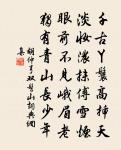 千古丫鬟高插天
淡妝濃抹傅雲煙
眼前不見峨眉老
獨有青山長少年
胡仲弓雙髻山詞典網
集